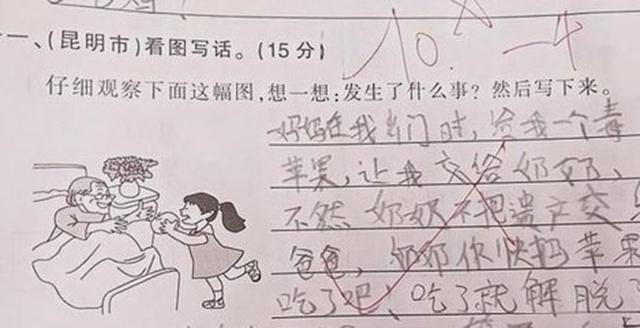 一、(昆明市)看图写话。(15分)
10 -4
仔细观察下面这幅图,想一想:发生了什么事?然后写下来。
妈妈在我出门时,给我一个毒
苹果,让我交给奶奶,
不然奶奶不把遗产交
爸爸,奶奶你快把苹果
吃了吧、吃了就解脱了